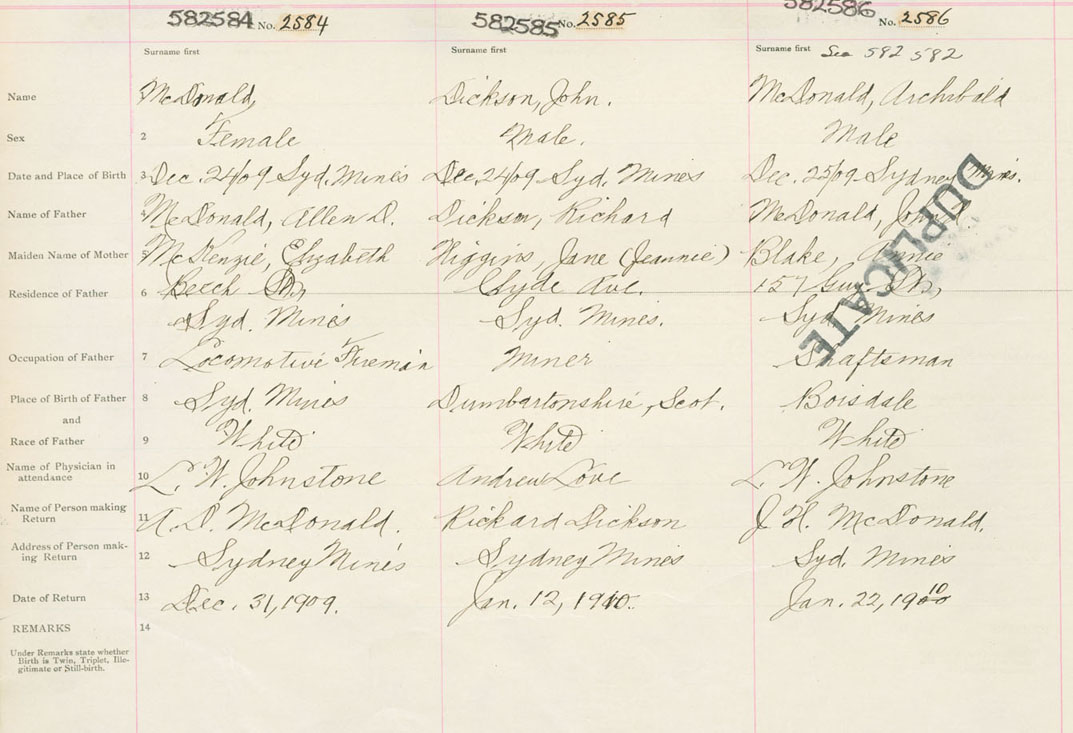 582584 No. 2584 582585 No. 2585 582586 No. 2586
Surname first Surname first Surname first See 582 582
Name McDonald, Dickson, John. McDonald, Archibald
Sex 2 Female Male. Male
Date and Place of Birth 3 Dec. 24/09 Syd. Mines Dec. 24/09 Syd. Mines Dec. 25/09 Sydney Mines.
Name of Father McDonald, Allen D. Dickson, Richard McDonald, John
Maiden Name of Mother 5 McKenzie, Elizabeth Higgins, Jane (Jeannie) Blake, Annie
Residence of Father 6 Beech St, Clyde Ave. 157 Guy St,
Syd. Mines Syd. Mines. Syd Mines
DUPLICATE
Occupation of Father 7 Locomotive Fireman Miner Shaftsman
Place of Birth of Father 8 Syd. Mines Dumbartonshire, Scot. Boisdale
and
Race of Father 9 White White White
Name of Physician in
attendance 10 L. W. Johnstone Andrew Love L. W. Johnstone
Name of Person making
Return 11 A. D. McDonald. Richard Dickson J. H. McDonald.
Address of Person mak-
ing Return 12 Sydney Mines Sydney Mines Syd. Mines
Date of Return 13 Dec. 31, 1909. Jan. 12, 1910. Jan. 22, 1910
REMARKS 14
Under Remarks state whether
Birth is Twin, Triplet, Ille-
gitimate or Still-birth.